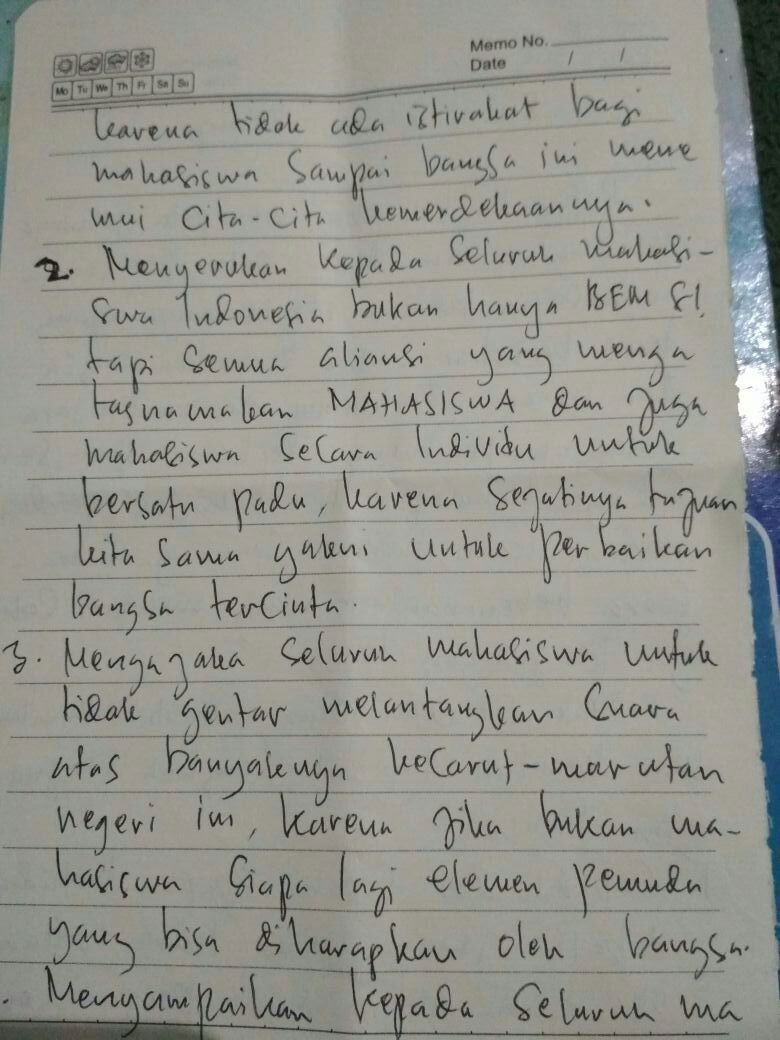 Memo No.
Date / /
Mo Tu We Th Fr Sa Su
karena tidak ada istirahat bagi
mahasiswa sampai bangsa ini mene
mui cita-cita kemerdekaannya.
2. Menyerukan kepada seluruh mahasi-
swa Indonesia bukan hanya BEM SI
tapi semua aliansi yang menga
tasnamakan MAHASISWA dan juga
mahasiswa secara Individu untuk
bersatu padu, karena sejatinya tujuan
kita sama yakni untuk perbaikan
bangsa tercinta.
3. Mengajaka seluruh mahasiswa untuk
tidak gentar melantangkan suara
atas banyaknya kecarut-marutan
negeri ini, karena jika bukan ma-
hasiswa siapa lagi elemen pemuda
yang bisa diharapkan oleh bangsa.
. Menyampaikan kepada seluruh ma